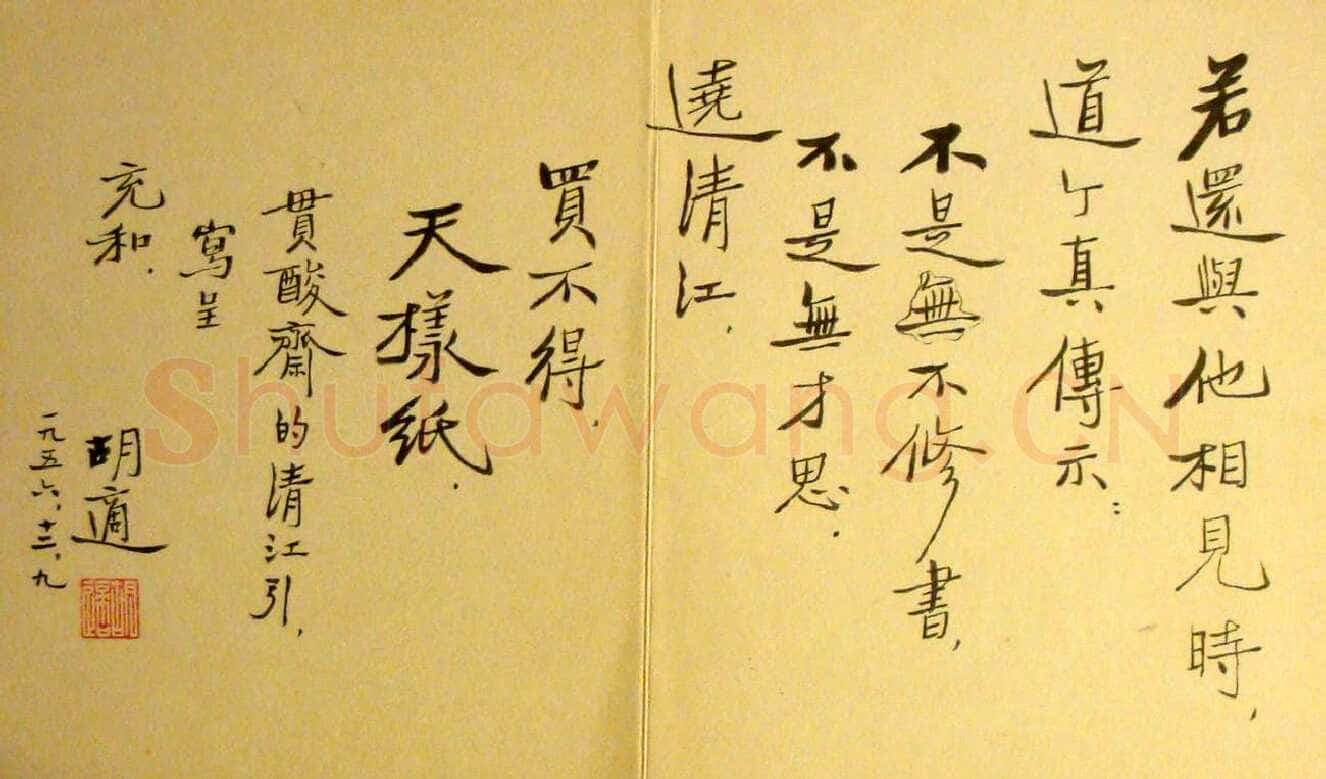 若還與他相見時，
道个真傳示：
不是無不修書，
不是無才思．
遶清江，
買不得．
天樣紙．
貫酸齋的清江引，
寫呈
充和．
胡適
一九五六，十二，九
Shufawang.CN